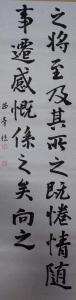 之將至及其所之既惓情隨
事遷感慨係之矣向之